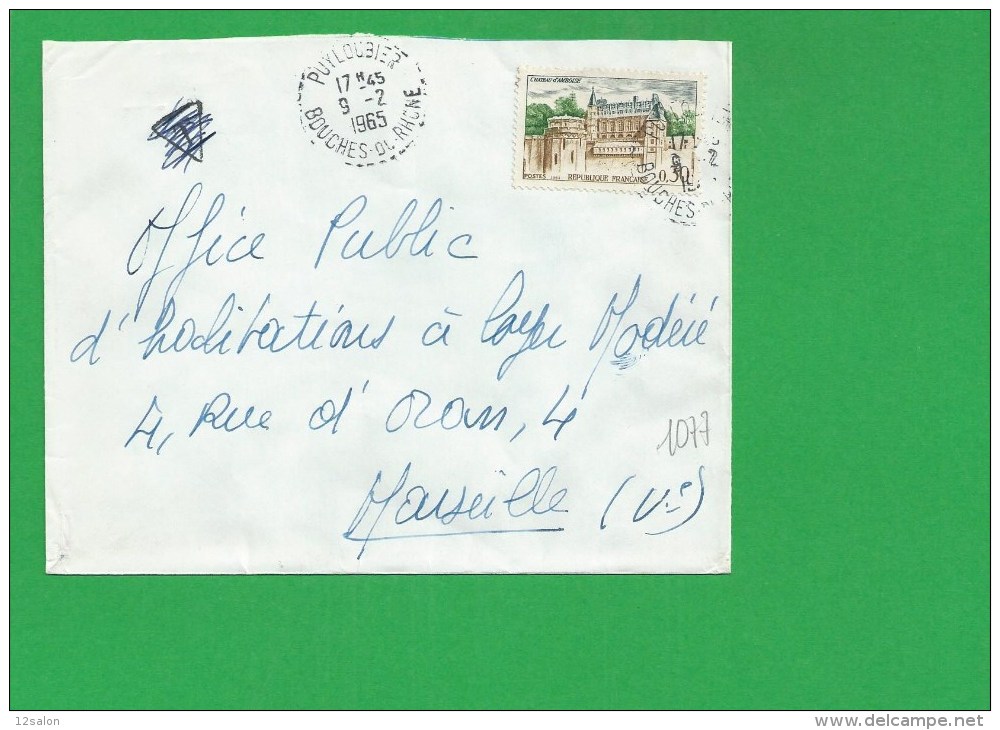 PUYLOUBIER
17 H 45
9 - 2
1965
BOUCHES-DU-RHONE
CHATEAU D'AMBOISE
POSTES
REPUBLIQUE FRANCAISE
0,30
BOUCHES
Office Public
d'habitations à loyer Modéré
4, Rue d'Oran, 4
1077
Marseille (Ve)
12salon
delcampe.net